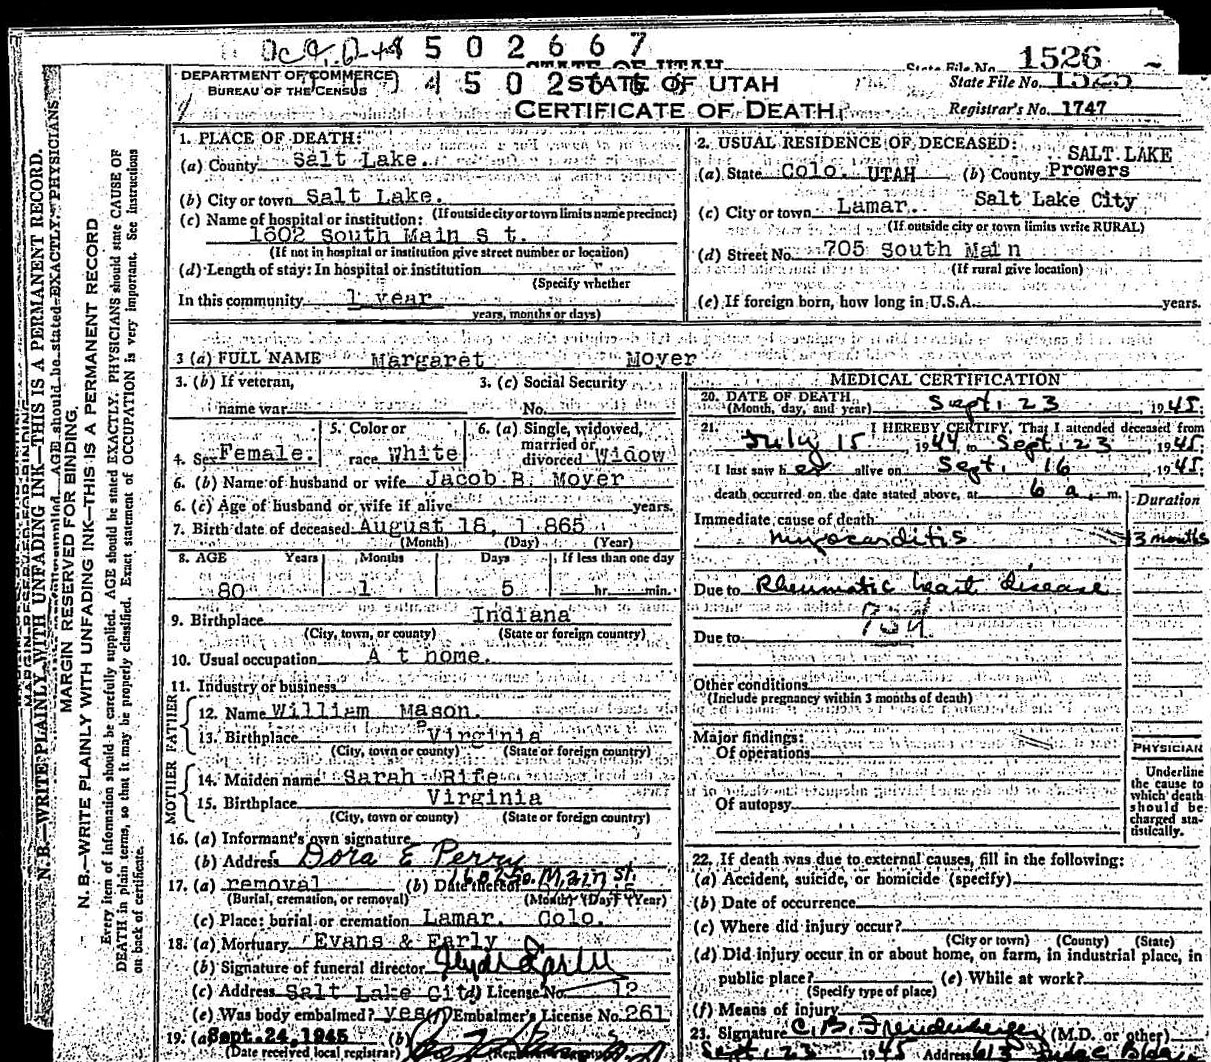 4502667
STATE OF UTAH
State File No. 1526
DEPARTMENT OF COMMERCE
BUREAU OF THE CENSUS
STATE OF UTAH
CERTIFICATE OF DEATH
State File No. 1525
Registrar's No. 1747
1. PLACE OF DEATH:
(a) County Salt Lake.
(b) City or town Salt Lake.
(If outside city or town limits name precinct)
(c) Name of hospital or institution:
1602 South Main St.
(If not in hospital or institution give street number or location)
(d) Length of stay: In hospital or institution
(Specify whether
In this community 1 year
years, months or days)
2. USUAL RESIDENCE OF DECEASED:
SALT LAKE
(a) State Colo. UTAH (b) County Prowers
(c) City or town Lamar. Salt Lake City
(If outside city or town limits write RURAL)
(d) Street No. 705 South Main
(If rural give location)
(e) If foreign born, how long in U.S.A. years.
3 (a) FULL NAME Margaret Moyer
3. (b) If veteran,
name war
3. (c) Social Security
No.
4. Sex Female.
5. Color or
race White
6. (a) Single, widowed,
married or
divorced Widow
6. (b) Name of husband or wife Jacob B. Moyer
6. (c) Age of husband or wife if alive years.
7. Birth date of deceased August 18, 1865
(Month) (Day) (Year)
8. AGE Years Months Days If less than one day
80 1 5 hr. min.
9. Birthplace Indiana
(City, town, or county) (State or foreign country)
10. Usual occupation At home.
11. Industry or business
FATHER
12. Name William Mason.
13. Birthplace Virginia
(City, town or county) (State or foreign country)
MOTHER
14. Maiden name Sarah Rife
15. Birthplace Virginia
(City, town or county) (State or foreign country)
16. (a) Informant's own signature
Dora E Perry
(b) Address 1602 So. Main St.
17. (a) removal (b) Date thereof
(Burial, cremation, or removal) (Month) (Day) (Year)
(c) Place: burial or cremation Lamar. Colo.
18. (a) Mortuary Evans & Early
(b) Signature of funeral director
(c) Address Salt Lake City (d) License No. 12
(e) Was body embalmed? yes (f) Embalmer's License No. 261
19. (a) Sept. 24, 1945 (b)
(Date received local registrar)
MEDICAL CERTIFICATION
20. DATE OF DEATH
(Month, day, and year) Sept. 23, 1945.
21. I HEREBY CERTIFY, That I attended deceased from
July 15, 1944 to Sept. 23, 1945.
I last saw her alive on Sept. 16, 1945.
death occurred on the date stated above, at 6 a. m.
Duration
Immediate cause of death
myocarditis 3 months
Due to Rheumatic heart disease
Due to
Other conditions
(Include pregnancy within 3 months of death)
Major findings:
Of operations
Of autopsy
PHYSICIAN
Underline
the cause to
which death
should be
charged sta-
tistically.
22. If death was due to external causes, fill in the following:
(a) Accident, suicide, or homicide (specify)
(b) Date of occurrence
(c) Where did injury occur?
(City or town) (County) (State)
(d) Did injury occur in or about home, on farm, in industrial place, in
public place? (e) While at work?
(Specify type of place)
(f) Means of injury
23. Signature C. B. Freudenberger (M.D. or other)
Sept. 23 1945 Address 613
N. B.—WRITE PLAINLY WITH UNFADING INK—THIS IS A PERMANENT RECORD.
MARGIN RESERVED FOR BINDING
N.B.—WRITE PLAINLY WITH UNFADING INK—THIS IS A PERMANENT RECORD
Every item of information should be carefully supplied. AGE should be stated EXACTLY. PHYSICIANS should state CAUSE OF
DEATH in plain terms, so that it may be properly classified. Exact statement of OCCUPATION is very important. See Instructions
on back of certificate.